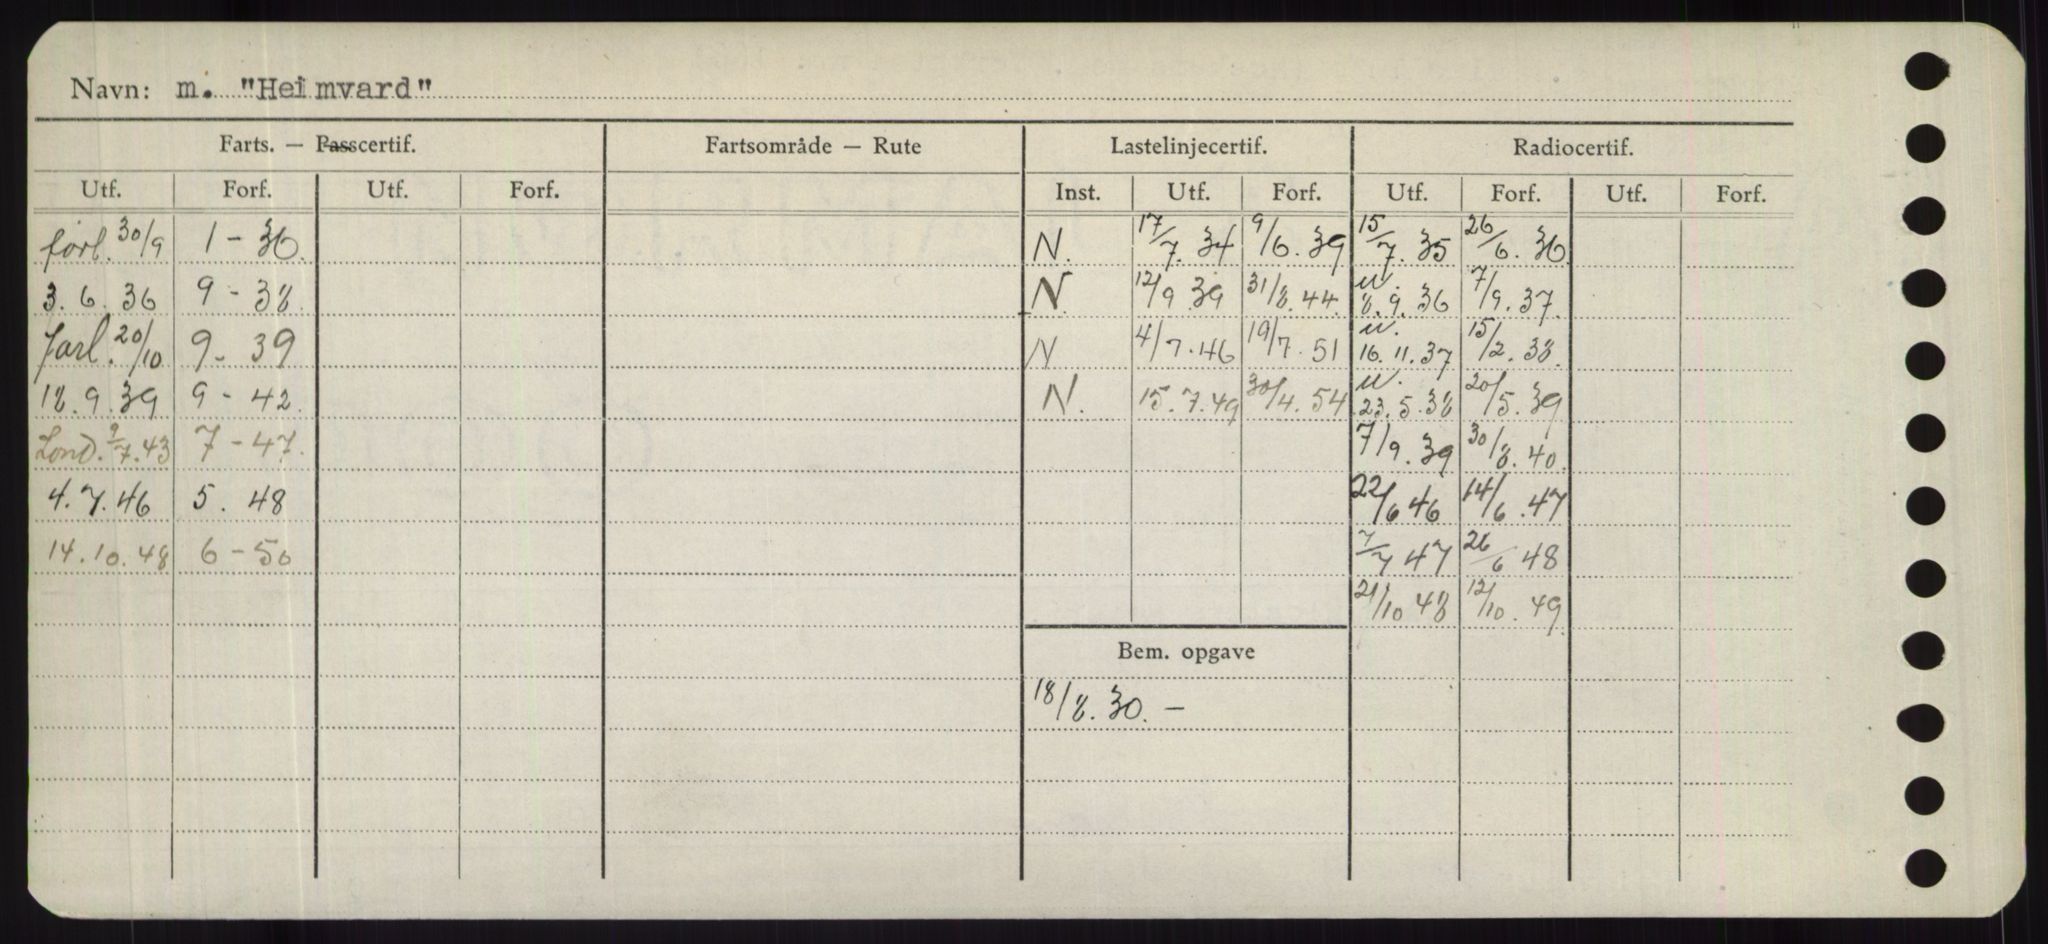 Navn: m. "Heimvard"
Farts. — Passcertif. Fartsområde — Rute Lastelinjecertif. Radiocertif.
Utf. Forf. Utf. Forf. Inst. Utf. Forf. Utf. Forf. Utf. Forf.
forl. 30/9 1 - 36. N. 17/7. 34 9/6. 39 15/7. 35 26/6. 36
3. 6. 36 9 - 38. N. 12/9 39 31/8. 44. u. 8. 9. 36 7/9. 37.
forl. 20/10 9 - 39 N 4/7. 46 19/7. 51 u. 16. 11. 37 15/2. 38.
18. 9. 39 9 - 42. N. 15. 7. 49 30/4. 54 u. 23. 5. 38 20/5. 39
Lond. 9/7. 43 7 - 47. 7/9. 39 30/8. 40.
4. 7. 46 5. 48 22/6 46 14/6. 47
14. 10. 48 6 - 50 7/7 47 26/6 48
21/10 48 12/10. 49
Bem. opgave
18/8. 30. —